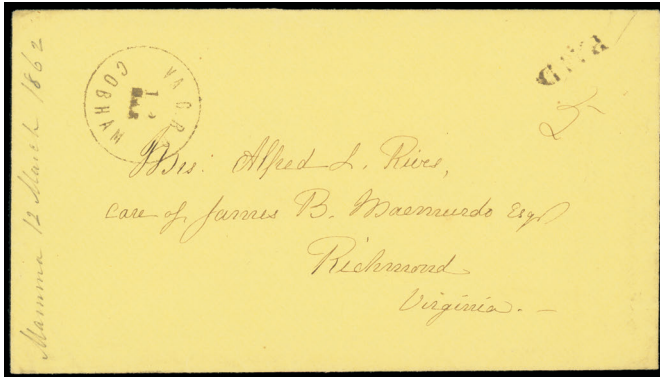 Mamma 12 March 1862
COBHAM
VA C.R.
MAR
PAID
5
Mrs: Alfred L. Rives,
care of James B. Macmurdo Esqr
Richmond
Virginia. -